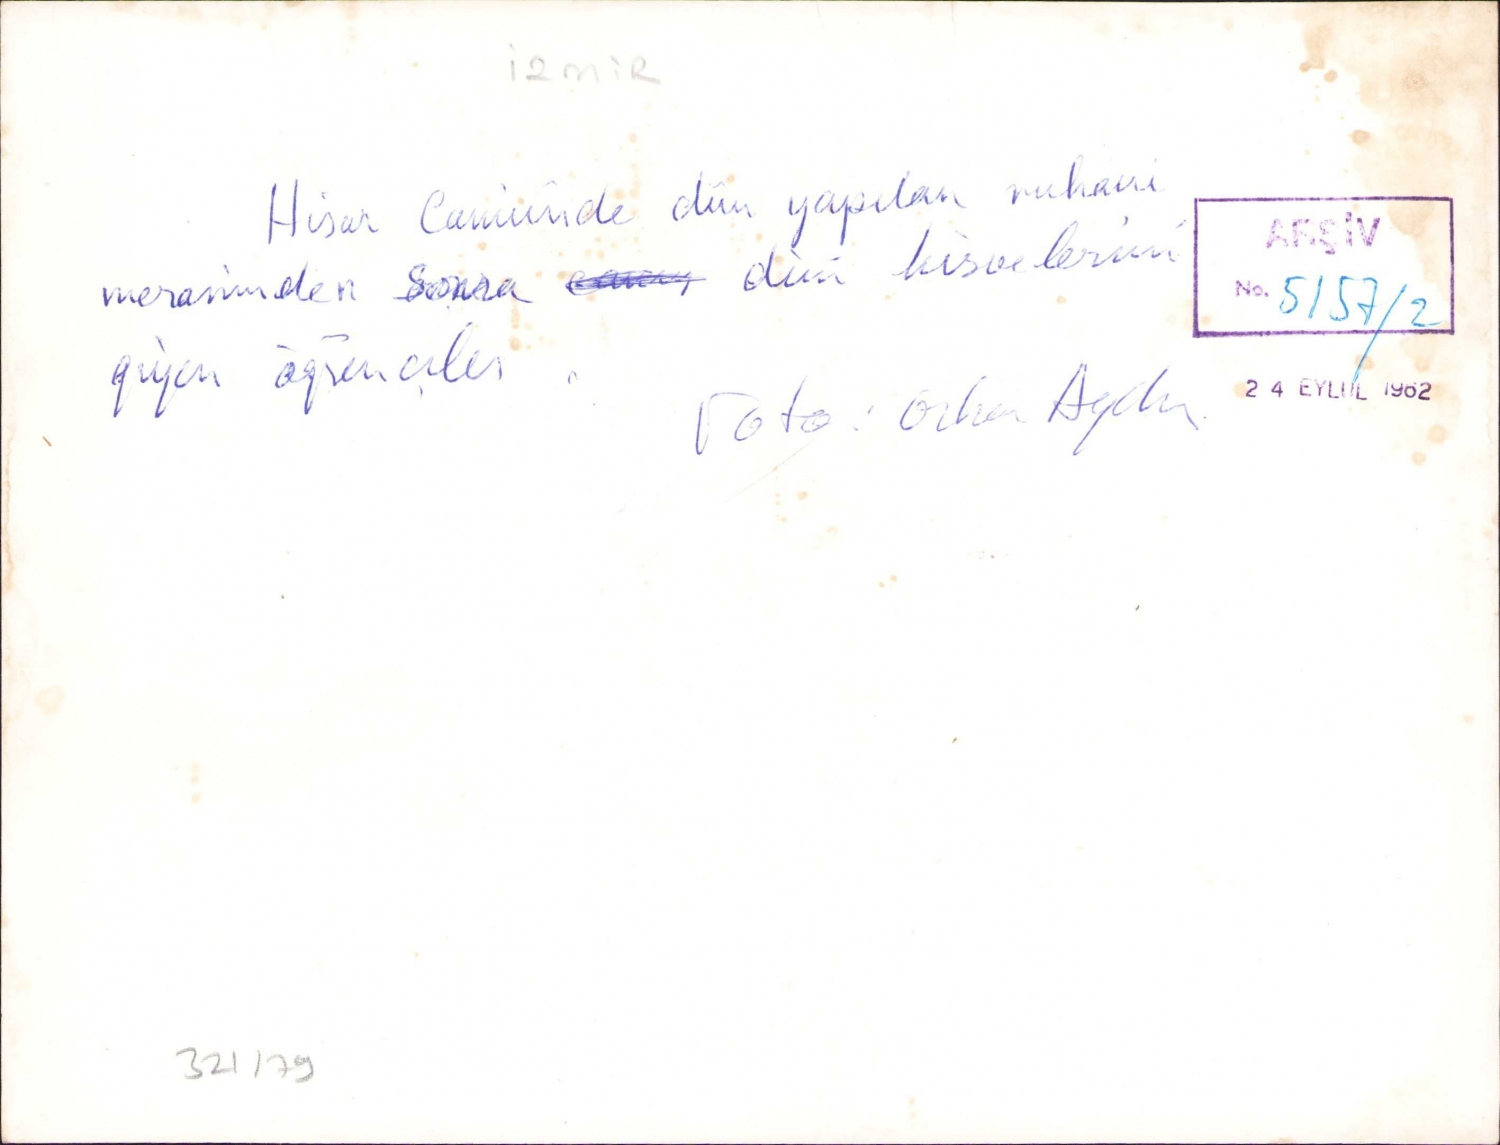 İzmir
Hisar Camiinde dün yapılan ruhani
merasimden sonra dini kisvelerini
giyen öğrenciler.
Foto: Orhan Aydın
ARŞİV
No. 5157/2
24 EYLÜL 1962
321/79